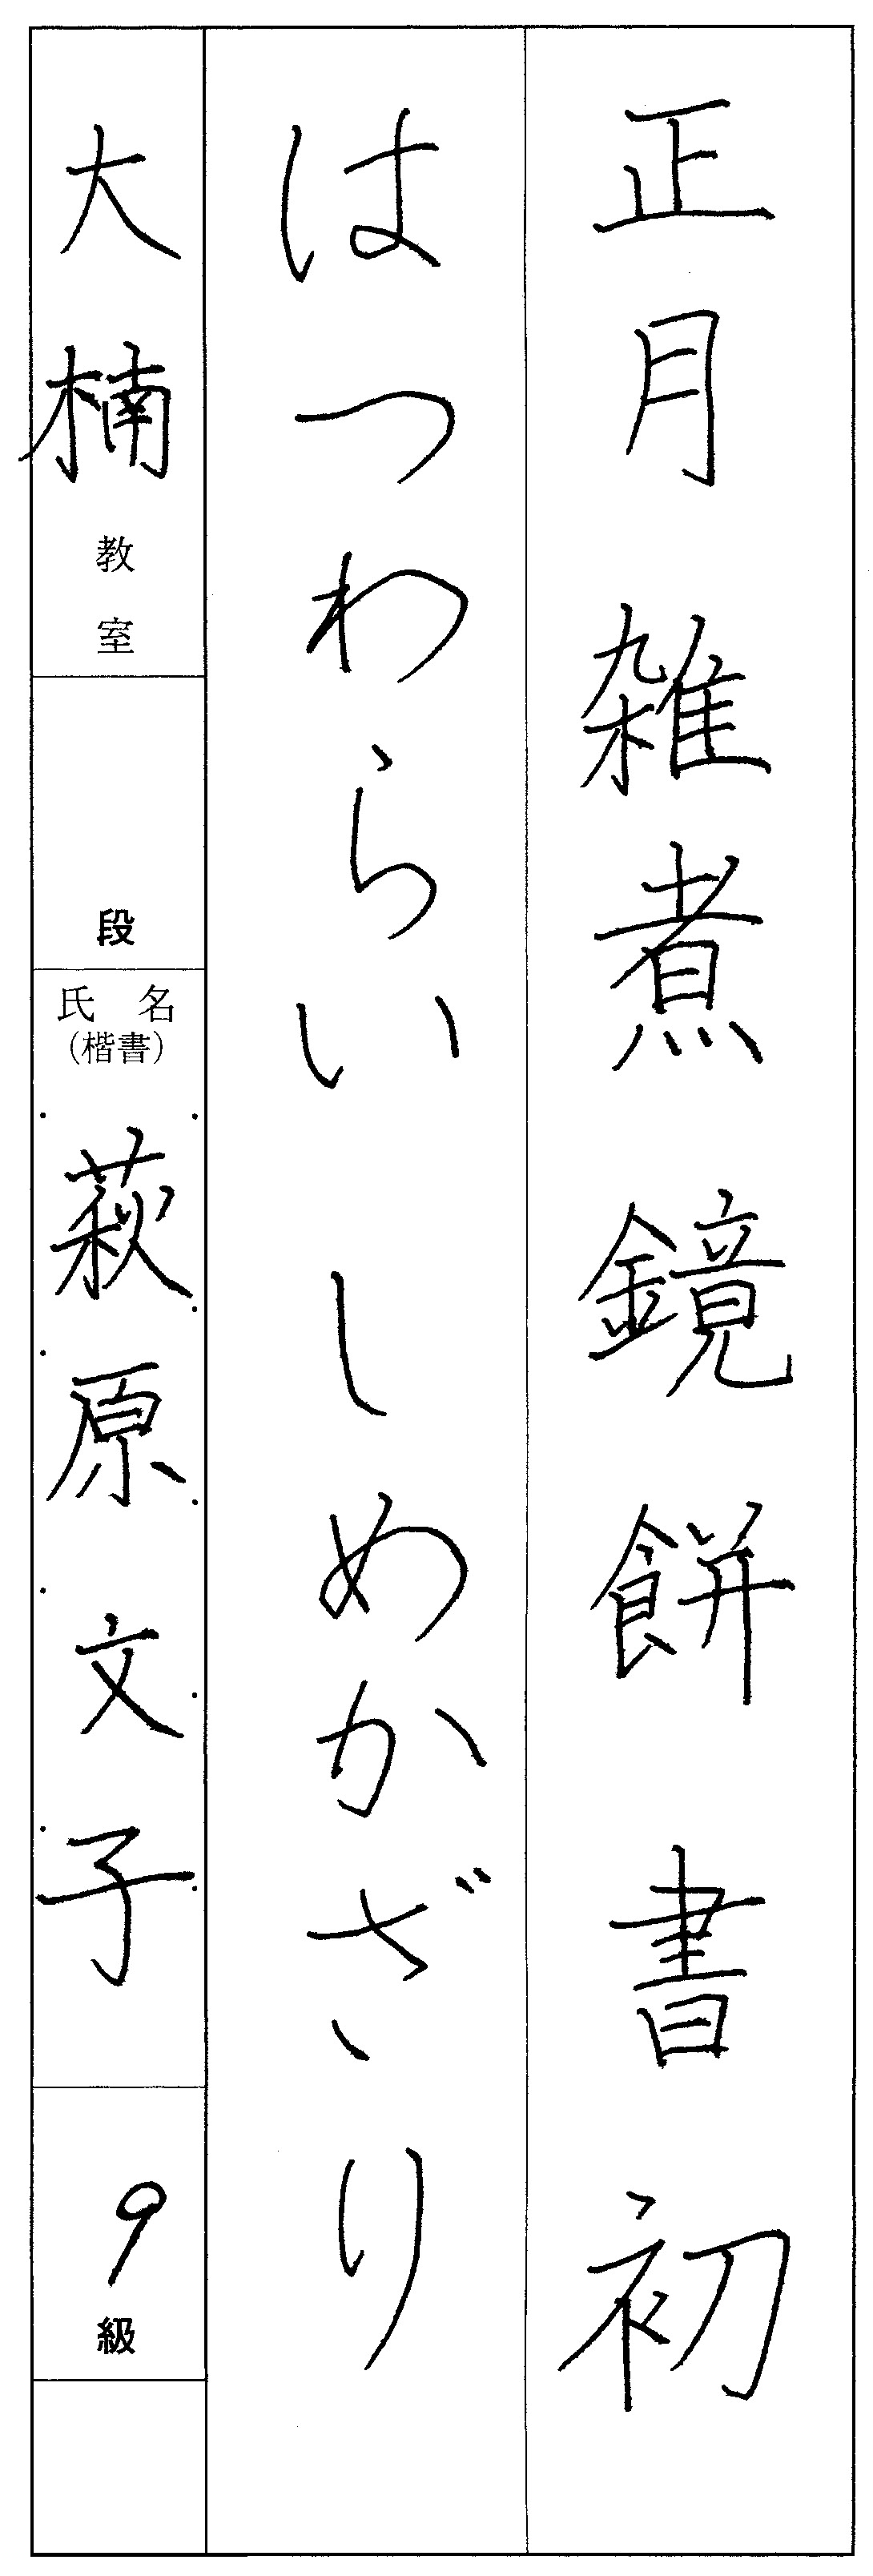 正月 雑煮 鏡餅 書初
はつわらい しめかざり
大楠教室
段
氏名
(楷書)
萩原文子
9級